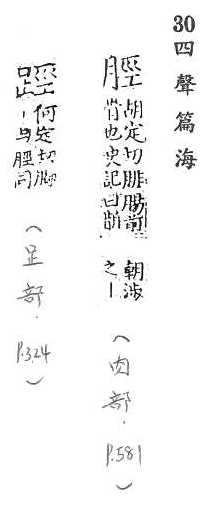 30四聲篇海
脛 胡定切腓腸前骨也史記曰斮朝涉之丨
(肉部.P.581)
踁 何定切脚丨与脛同
(足部.P.324)